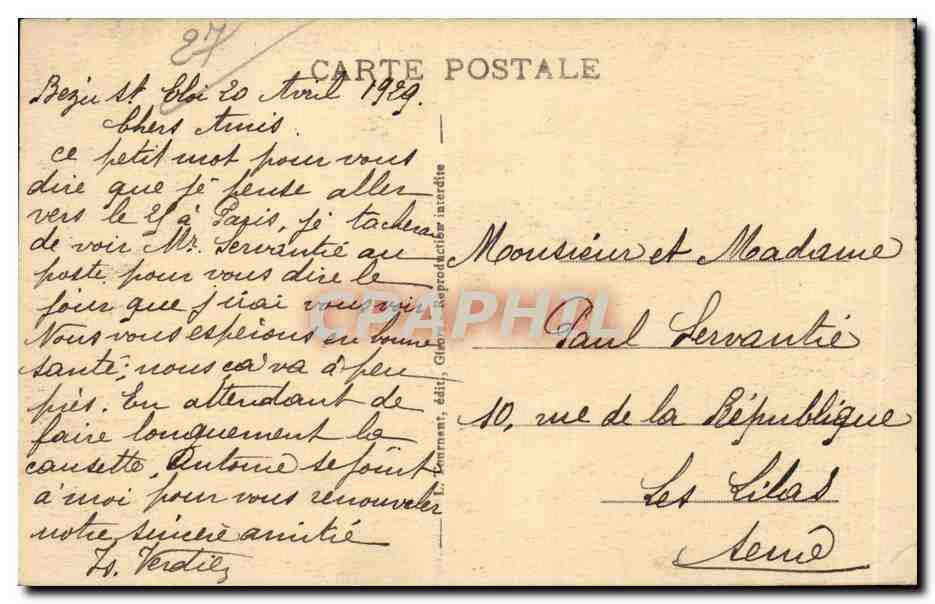 27
CARTE POSTALE
Bézu St Eloi 20 Avril 1929.
Chers Amis.
ce petit mot pour vous
dire que je pense aller
vers le à Paris, je tacherai
de voir Mr. Servantié au
poste pour vous dire le
jour que j'irai vous voir
Nous vous espérons en bonne
santé; nous ça va à peu
près. En attendant de
faire longuement la
causette, Antoine se joint
à moi pour vous renouveler
notre sincère amitié
Verdier
L. Tournant, édit., Gisors. Reproduction interdite
Monsieur et Madame
Paul Servantié
10, rue de la République
Les Lilas
Seine
CPAPHIL